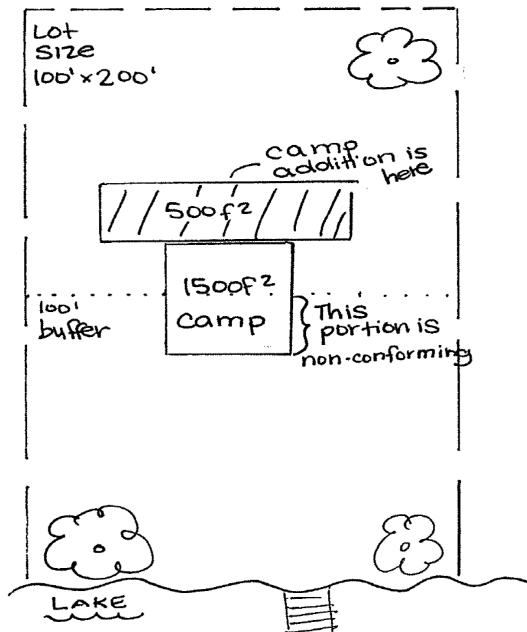 Lot
size
100' x 200'
camp
addition is
here
500f²
1500f²
camp
100'
buffer
This
portion is
non-conforming
LAKE